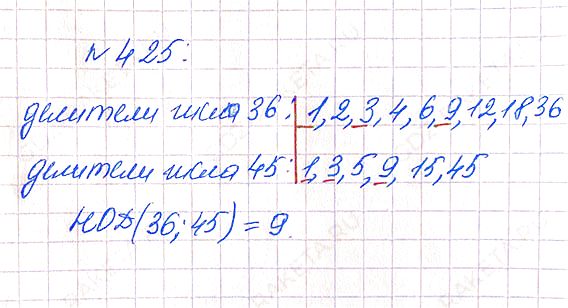 № 425:
делители числа 36: 1, 2, 3, 4, 6, 9, 12, 18, 36
делители числа 45: 1, 3, 5, 9, 15, 45
НОД(36; 45) = 9.